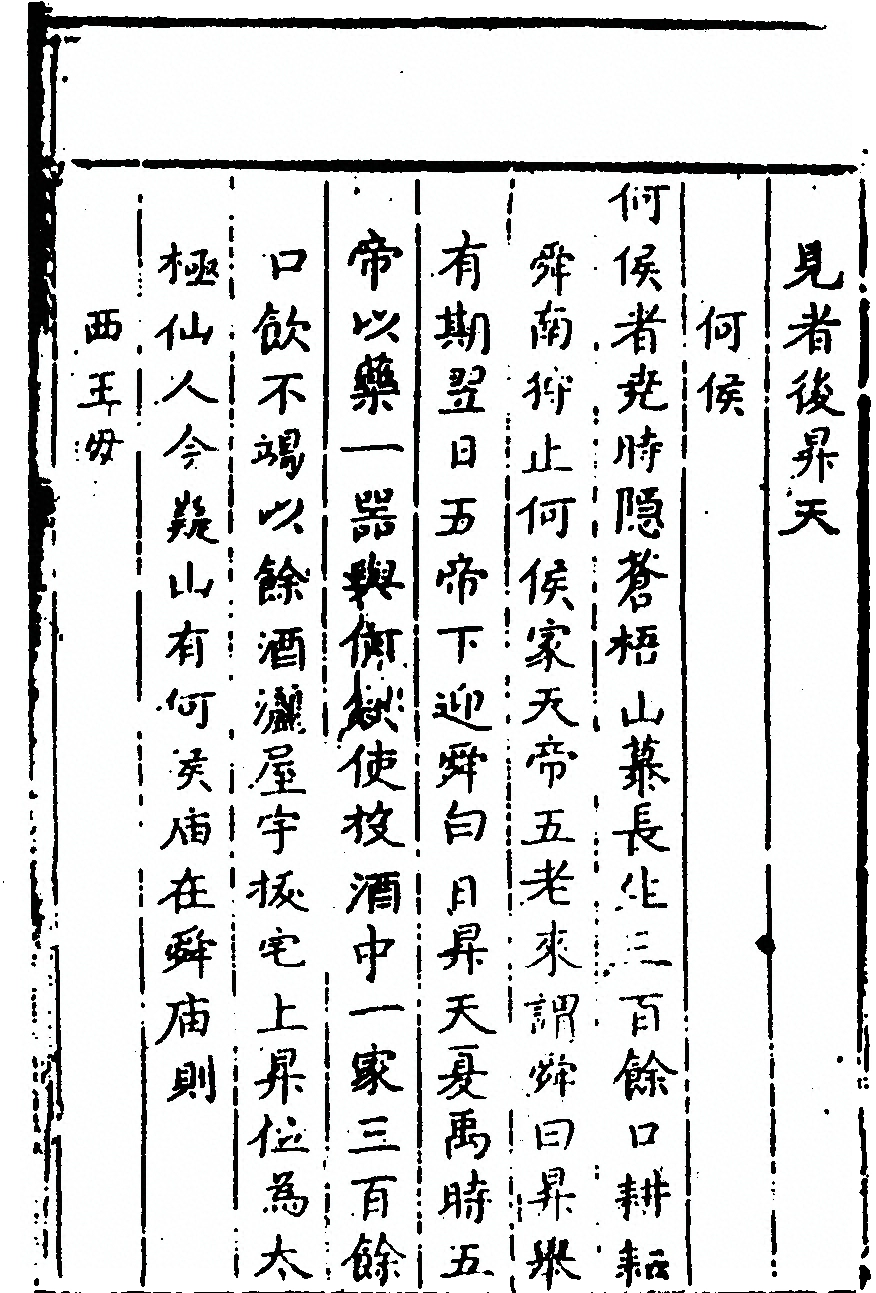 見者後昇天
何侯
何侯者堯時隐蒼梧山慕長生三百餘口耕耘
舜南狩止何侯家天帝五老來謂舜曰昇舉
有期翌日五帝下迎舜白日昇天夏禹時五
帝以藥一器與何侯使投酒中一家三百餘
口飲不竭以餘酒灑屋宇拔宅上昇位為太
極仙人今嶷山有何侯庙在舜庙則
西王母